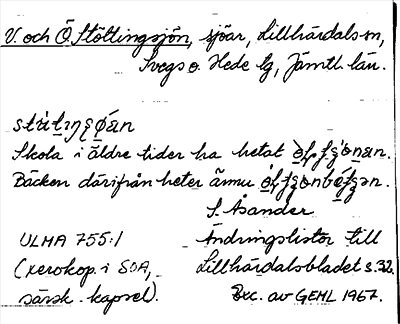 V. och Ö Stöttingsjön, sjöar, Lillhärdals sn,
Svegs o. Hede tg, Jämtl. län.
Skola i äldre tider ha hetat
Bäcken därifrån heter ännu
S. Åsander
ULMA 755:1 Ändringslistor till
(xerokop. i SOA, Lillhärdalsbladet s. 32.
särsk. kapsel). Exc. av GEHL 1967.